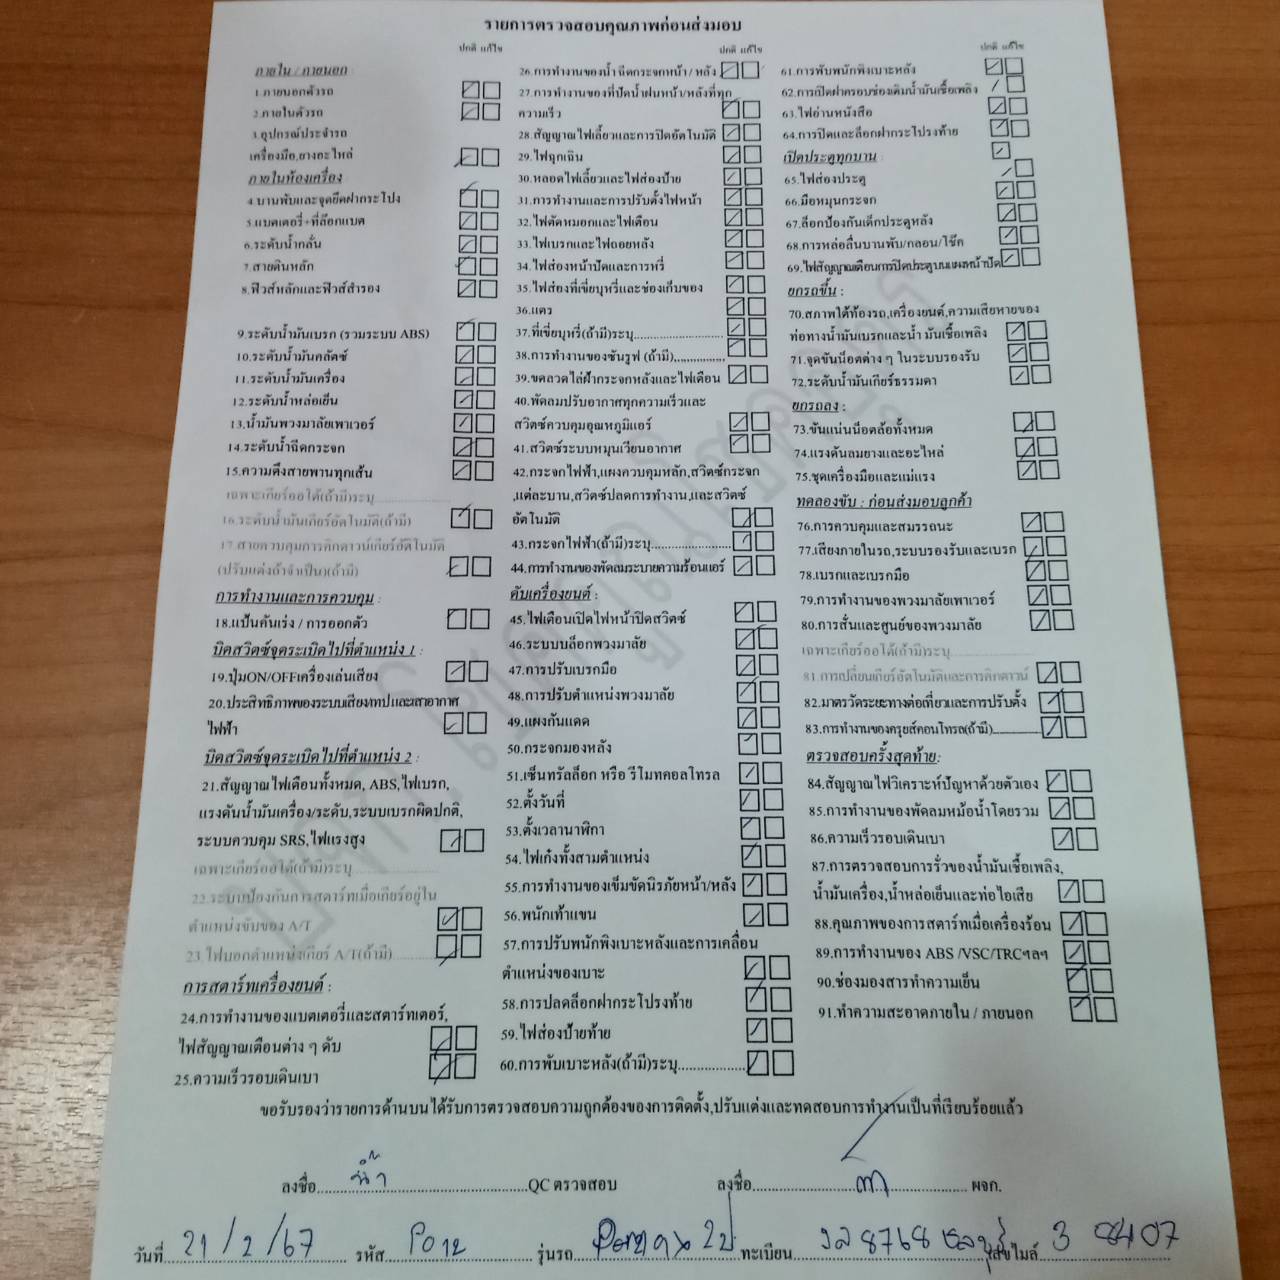 รายการตรวจสอบคุณภาพก่อนส่งมอบ
ปกติ แก้ไข
ภายใน / ภายนอก :
1.ภายนอกตัวรถ
2.ภายในตัวรถ
3.อุปกรณ์ประจำรถ
เครื่องมือ,ยางอะไหล่
ภายในห้องเครื่อง
4.บานพับและจุดยึดฝากระโปง
5.แบตเตอรี่+ที่ล๊อกแบต
6.ระดับน้ำกลั่น
7.สายดินหลัก
8.ฟิวส์หลักและฟิวส์สำรอง
9.ระดับน้ำมันเบรก (รวมระบบ ABS)
10.ระดับน้ำมันคลัตซ์
11.ระดับน้ำมันเครื่อง
12.ระดับน้ำหล่อเย็น
13.น้ำมันพวงมาลัยเพาเวอร์
14.ระดับน้ำฉีดกระจก
15.ความตึงสายพานทุกเส้น
เฉพาะเกียร์ออโต้(ถ้ามี)ระบุ................
16.ระดับน้ำมันเกียร์อัตโนมัติ(ถ้ามี)
17.สายควบคุมการคิกดาวน์เกียร์อัตโนมัติ
(ปรับแต่งถ้าจำเป็น)(ถ้ามี)
การทำงานและการควบคุม :
18.แป้นคันเร่ง / การออกตัว
บิดสวิตซ์จุดระเบิดไปที่ตำแหน่ง 1 :
19.ปุ่มON/OFFเครื่องเล่นเสียง
20.ประสิทธิภาพของระบบเสียงเทปและเสาอากาศ
ไฟฟ้า
บิดสวิตซ์จุดระเบิดไปที่ตำแหน่ง 2 :
21.สัญญาณไฟเตือนทั้งหมด, ABS,ไฟเบรก,
แรงดันน้ำมันเครื่อง/ระดับ,ระบบเบรกผิดปกติ,
ระบบควบคุม SRS,ไฟแรงสูง
เฉพาะเกียร์ออโต้(ถ้ามี)ระบุ................
22.ระบบป้องกันการสตาร์ทเมื่อเกียร์อยู่ใน
ตำแหน่งขับของ A/T
23.ไฟบอกตำแหน่งเกียร์ A/T(ถ้ามี)
การสตาร์ทเครื่องยนต์ :
24.การทำงานของแบตเตอรี่และสตาร์ทเตอร์,
ไฟสัญญาณเตือนต่าง ๆ ดับ
25.ความเร็วรอบเดินเบา
ปกติ แก้ไข
26.การทำงานของน้ำ ฉีดกระจกหน้า / หลัง
27.การทำงานของที่ปัดน้ำฝนหน้า/หลังที่ทุก
ความเร็ว
28.สัญญาณไฟเลี้ยวและการปิดอัตโนมัติ
29.ไฟฉุกเฉิน
30.หลอดไฟเลี้ยวและไฟส่องป้าย
31.การทำงานและการปรับตั้งไฟหน้า
32.ไฟตัดหมอกและไฟเตือน
33.ไฟเบรกและไฟถอยหลัง
34.ไฟส่องหน้าปัดและการหรี่
35.ไฟส่องที่เขี่ยบุหรี่และช่องเก็บของ
36.แตร
37.ที่เขี่ยบุหรี่(ถ้ามี)ระบุ......................
38.การทำงานของซันรูฟ (ถ้ามี)................
39.ขดลวดไล่ฝ้ากระจกหลังและไฟเตือน
40.พัดลมปรับอากาศทุกความเร็วและ
สวิตซ์ควบคุมอุณหภูมิแอร์
41.สวิตซ์ระบบหมุนเวียนอากาศ
42.กระจกไฟฟ้า,แผงควบคุมหลัก,สวิตซ์กระจก
,แต่ละบาน,สวิตซ์ปลดการทำงาน,และสวิตซ์
อัตโนมัติ
43.กระจกไฟฟ้า(ถ้ามี)ระบุ......................
44.การทำงานของพัดลมระบายความร้อนแอร์
ดับเครื่องยนต์ :
45.ไฟเตือนเปิดไฟหน้าปิดสวิตซ์
46.ระบบบล็อกพวงมาลัย
47.การปรับเบรกมือ
48.การปรับตำแหน่งพวงมาลัย
49.แผงกันแดด
50.กระจกมองหลัง
51.เซ็นทรัลล็อก หรือ รีโมทคอลโทรล
52.ตั้งวันที่
53.ตั้งเวลานาฬิกา
54.ไฟเก๋งทั้งสามตำแหน่ง
55.การทำงานของเข็มขัดนิรภัยหน้า/หลัง
56.พนักเท้าแขน
57.การปรับพนักพิงเบาะหลังและการเคลื่อน
ตำแหน่งของเบาะ
58.การปลดล็อกฝากระโปรงท้าย
59.ไฟส่องป้ายท้าย
60.การพับเบาะหลัง(ถ้ามี)ระบุ..................
ปกติ แก้ไข
61.การพับพนักพิงเบาะหลัง
62.การเปิดฝาครอบช่องเติมน้ำมันเชื้อเพลิง
63.ไฟอ่านหนังสือ
64.การปิดและล็อกฝากระโปรงท้าย
เปิดประตูทุกบาน :
65.ไฟส่องประตู
66.มือหมุนกระจก
67.ล็อกป้องกันเด็กประตูหลัง
68.การหล่อลื่นบานพับ/กลอน/โช๊ก
69.ไฟสัญญาณเตือนการปิดประตูบนแผงหน้าปัด
ยกรถขึ้น :
70.สภาพใต้ท้องรถ,เครื่องยนต์,ความเสียหายของ
ท่อทางน้ำมันเบรกและน้ำ มันเชื้อเพลิง
71.จุดขันน็อตต่าง ๆ ในระบบรองรับ
72.ระดับน้ำมันเกียร์ธรรมดา
ยกรถลง :
73.ขันแน่นน็อตล้อทั้งหมด
74.แรงดันลมยางและอะไหล่
75.ชุดเครื่องมือและแม่แรง
ทดลองขับ : ก่อนส่งมอบลูกค้า
76.การควบคุมและสมรรถนะ
77.เสียงภายในรถ,ระบบรองรับและเบรก
78.เบรกและเบรกมือ
79.การทำงานของพวงมาลัยเพาเวอร์
80.การสั่นและศูนย์ของพวงมาลัย
เฉพาะเกียร์ออโต้(ถ้ามี)ระบุ................
81.การเปลี่ยนเกียร์อัตโนมัติและการคิกดาวน์
82.มาตรวัดระยะทางต่อเที่ยวและการปรับตั้ง
83.การทำงานของครุยส์คอนโทรล(ถ้ามี)..............
ตรวจสอบครั้งสุดท้าย:
84.สัญญาณไฟวิเคราะห์ปัญหาด้วยตัวเอง
85.การทำงานของพัดลมหม้อน้ำโดยรวม
86.ความเร็วรอบเดินเบา
87.การตรวจสอบการรั่วของน้ำมันเชื้อเพลิง,
น้ำมันเครื่อง,น้ำหล่อเย็นและท่อไอเสีย
88.คุณภาพของการสตาร์ทเมื่อเครื่องร้อน
89.การทำงานของ ABS /VSC/TRCฯลฯ
90.ช่องมองสารทำความเย็น
91.ทำความสะอาดภายใน / ภายนอก
ขอรับรองว่ารายการด้านบนได้รับการตรวจสอบความถูกต้องของการติดตั้ง,ปรับแต่งและทดสอบการทำงานเป็นที่เรียบร้อยแล้ว
ลงชื่อ....................QC ตรวจสอบ ลงชื่อ.................... ผจก.
วันที่ 21/2/67 รหัส รุ่นรถ ทะเบียน 8768 ชลบุรี เลขไมล์